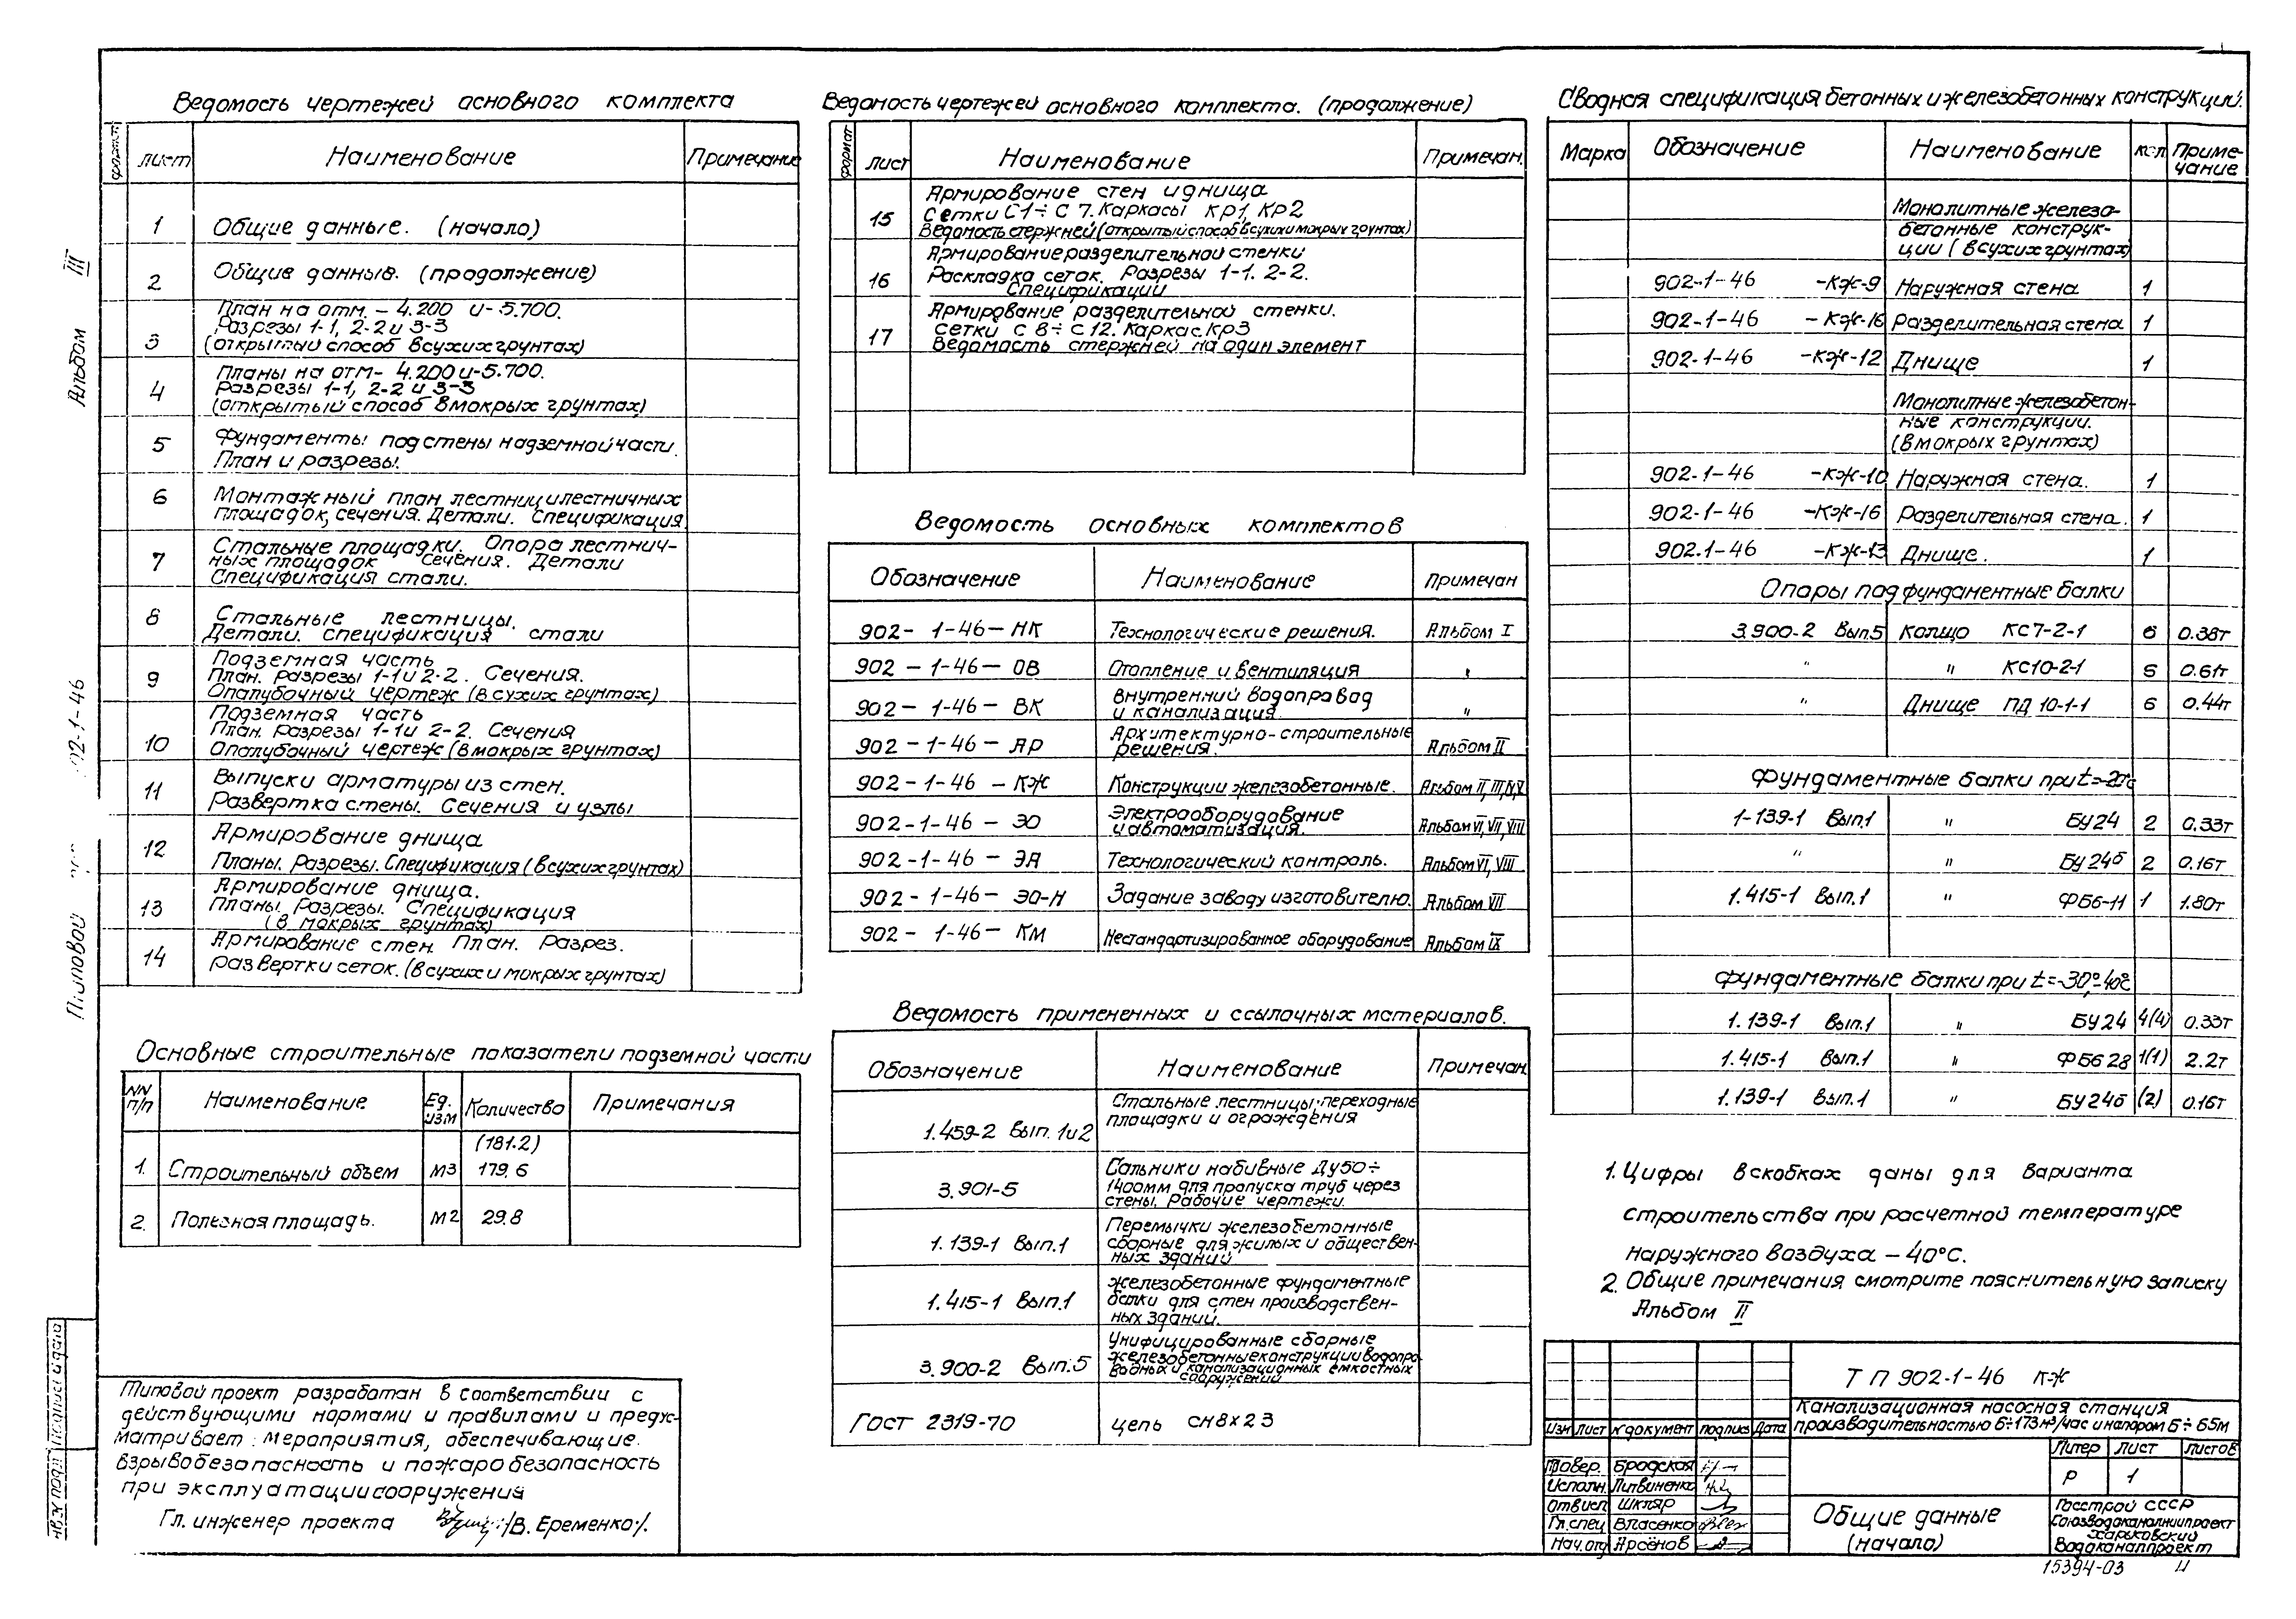 Ведомость чертежей основного комплекта
формат лист Наименование Примечание
1 Общие данные. (начало)
2 Общие данные. (продолжение)
План на отм. – 4.200 и – 5.700.
Разрезы 1-1, 2-2 и 3-3
3 (открытый способ в сухих грунтах)
Планы на отм – 4.200 и – 5.700.
Разрезы 1-1, 2-2 и 3-3
4 (открытый способ в мокрых грунтах)
5 Фундаменты под стены надземной части.
План и разрезы.
6 Монтажный план лестниц и лестничных
площадок, сечения. Детали. Спецификация
Стальные площадки. Опора лестнич-
7 ных площадок сечения. Детали
Спецификация стали.
8 Стальные лестницы.
Детали. Спецификация стали
Подземная часть
9 План. разрезы 1-1 и 2-2. Сечения.
Опалубочный чертеж (в сухих грунтах)
Подземная часть
План. разрезы 1-1 и 2-2. Сечения
10 Опалубочный чертеж (в мокрых грунтах)
11 Выпуски арматуры из стен.
Развертка стены. Сечения и узлы
12 Армирование днища
Планы. Разрезы. Спецификация (в сухих грунтах)
Армирование днища.
13 Планы. Разрезы. Спецификация
(в мокрых грунтах)
14 Армирование стен. План. Разрез.
Развертки сеток. (в сухих и мокрых грунтах)
Основные строительные показатели подземной части
NN п/п Наименование Ед. изм Количество Примечания
(181.2)
1. Строительный объем м3 179.6
2. Полезная площадь. м2 29.8
Типовой проект разработан в соответствии с
действующими нормами и правилами и предус-
матривает мероприятия, обеспечивающие
взрывобезопасность и пожаробезопасность
при эксплуатации сооружения
Гл. инженер проекта /В. Еременко/.
Ведомость чертежей основного комплекта. (продолжение)
формат лист Наименование Примечан.
Армирование стен и днища
15 Сетки С1÷С7. Каркасы КР1, КР2
Ведомость стержней (открытый способ в сухих и мокрых грунтах)
Армирование разделительной стенки
16 Раскладка сеток. Разрезы 1-1. 2-2.
Спецификации
Армирование разделительной стенки.
17 сетки С8÷С12. Каркас КР3
Ведомость стержней на один элемент
Ведомость основных комплектов
Обозначение Наименование Примечан
902-1-46-НК Технологические решения. Альбом I
902-1-46-ОВ Отопление и вентиляция "
902-1-46-ВК Внутренний водопровод
и канализация. "
902-1-46-АР Архитектурно-строительные
решения. Альбом II
902-1-46-КЖ Конструкции железобетонные. Альбом II, III, IV, V
902-1-46-ЭО Электрооборудование
и автоматизация. Альбом VI, VII, VIII
902-1-46-ЭА Технологический контроль. Альбом VI, VIII
902-1-46-ЭО-Н Задание заводу изготовителю. Альбом VII
902-1-46-КМ Нестандартизированное оборудование Альбом IX
Ведомость примененных и ссылочных материалов.
Обозначение Наименование Примечан
1.459-2 Вып. 1 и 2 Стальные лестницы, переходные
площадки и ограждения
Сальники набивные Ду50÷
3.901-5 1400мм для пропуска труб через
стены. Рабочие чертежи.
Перемычки железобетонные
1.139-1 Вып.1 сборные для жилых и обществен-
ных зданий.
железобетонные фундаментные
1.415-1 Вып.1 балки для стен производствен-
ных зданий.
Унифицированные сборные
3.900-2 Вып.5 железобетонные конструкции водопро-
водных и канализационных емкостных
сооружений
Гост 2319-70 цепь СН8х23
Сводная спецификация бетонных и железобетонных конструкций.
Марка Обозначение Наименование кол Приме-
чание
Монолитные железо-
бетонные конструк-
ции (в сухих грунтах)
902-1-46 -КЖ-9 Наружная стена 1
902-1-46 -КЖ-16 Разделительная стена 1
902-1-46 -КЖ-12 Днище 1
Монолитные железобетон-
ные конструкции.
(в мокрых грунтах)
902-1-46 -КЖ-10 Наружная стена. 1
902-1-46 -КЖ-16 Разделительная стена. 1
902.1-46 -КЖ-13 Днище. 1
Опоры под фундаментные балки
3.900-2 Вып5 Кольцо КС7-2-1 6 0.38т
" " КС10-2-1 6 0.61т
" Днище ПД 10-1-1 6 0.44т
Фундаментные балки при t=-20°с
1-139-1 Вып.1 " БУ24 2 0.33т
" " БУ24б 2 0.16т
1.415-1 Вып.1 " ФБ6-11 1 1.80т
Фундаментные балки при t=-30°,-40°с
1.139-1 Вып.1 " БУ24 4(4) 0.33т
1.415-1 Вып.1 " ФБ6 28 1(1) 2.2т
1.139-1 Вып.1 " БУ24б (2) 0.16т
1. Цифры в скобках даны для варианта
строительства при расчетной температуре
наружного воздуха – 40°С.
2. Общие примечания смотрите пояснительную записку
Альбом II
Т П 902-1-46 КЖ
Канализационная насосная станция
производительностью 6÷173м³/час и напором 6÷65м
Изм Лист N документ подпись Дата
Литер Лист Листов
Р 1
Провер. Бродская
Исполн. Литвиненко
Отв исп Шкляр
Гл. спец Власенко
Нач. отд Арсенов
Общие данные
(начало)
Госстрой СССР
Союзводоканалниипроект
Харьковский
Водоканалпроект
15394-03 4
Альбом III
02-1-46
Типовой